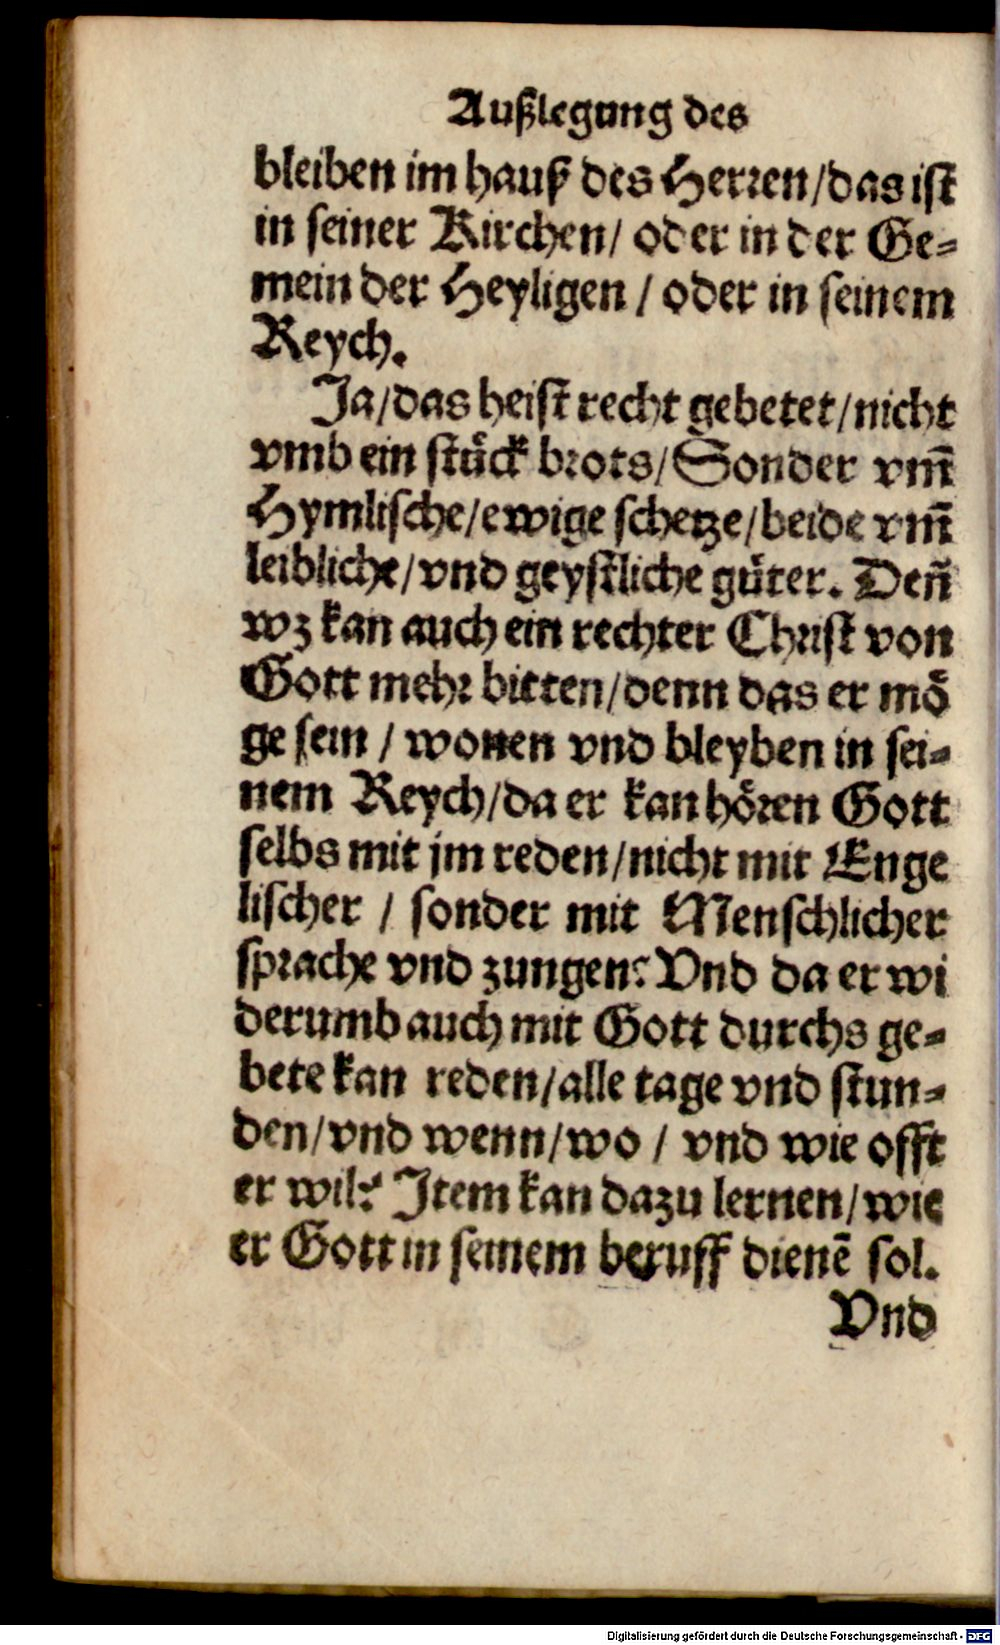 Außlegung des
bleiben im hauß des Herren/das ist
in seiner Kirchen/ oder in der Ge-
mein der Heyligen / oder in seinem
Reych.
Ja/das heist recht gebetet/nicht
vmb ein stuͤck brots/Sonder vm̄
Hymlische/ewige schetze/beide vm̄
leibliche/vnd geystliche guͤter. Den̄
wz kan auch ein rechter Christ von
Gott mehr bitten/denn das er moͤ
ge sein / wonen vnd bleyben in sei-
nem Reych/da er kan hoͤren Gott
selbs mit jm reden/nicht mit Enge
lischer / sonder mit Menschlicher
sprache vnd zungen? Vnd da er wi
derumb auch mit Gott durchs ge-
bete kan reden/alle tage vnd stun-
den/vnd wenn/wo / vnd wie offt
er wil? Item kan dazu lernen/wie
er Gott in seinem beruff dienē sol.
Vnd
Digitalisierung gefördert durch die Deutsche Forschungsgemeinschaft - DFG